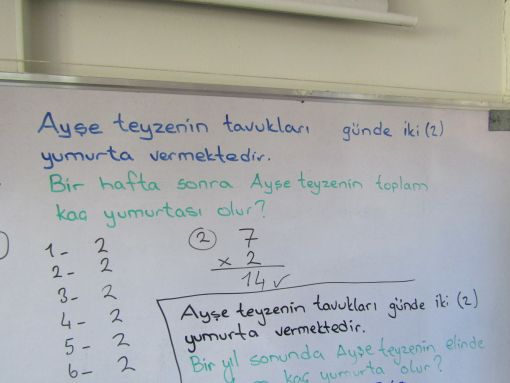 Ayşe teyzenin tavukları günde iki (2)
yumurta vermektedir.
Bir hafta sonra Ayşe teyzenin toplam
kaç yumurtası olur?
1- 2
2- 2
3- 2
4- 2
5- 2
6- 2
2 7
x 2
14 ✓
Ayşe teyzenin tavukları günde iki (2)
yumurta vermektedir.
Bir yıl sonunda Ayşe teyzenin elinde
kaç yumurta olur?